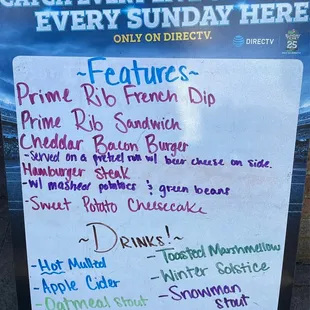 EVERY SUNDAY HERE
ONLY ON DIRECTV.
DIRECTV
25
~Features~
Prime Rib French Dip
Prime Rib Sandwich
Cheddar Bacon Burger
-Served on a pretzel run w/ beer cheese on side.
Hamburger Steak
-w/ mashed potatoes & green beans
-Sweet Potato Cheesecake
~DRINKS!~
-Hot Mulled
Apple Cider
-Oatmeal Stout
-Toasted Marshmellow
-Winter Solstice
-Snowman
Stout